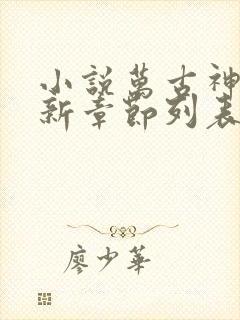 小說萬古神
新章節列表
廖少華